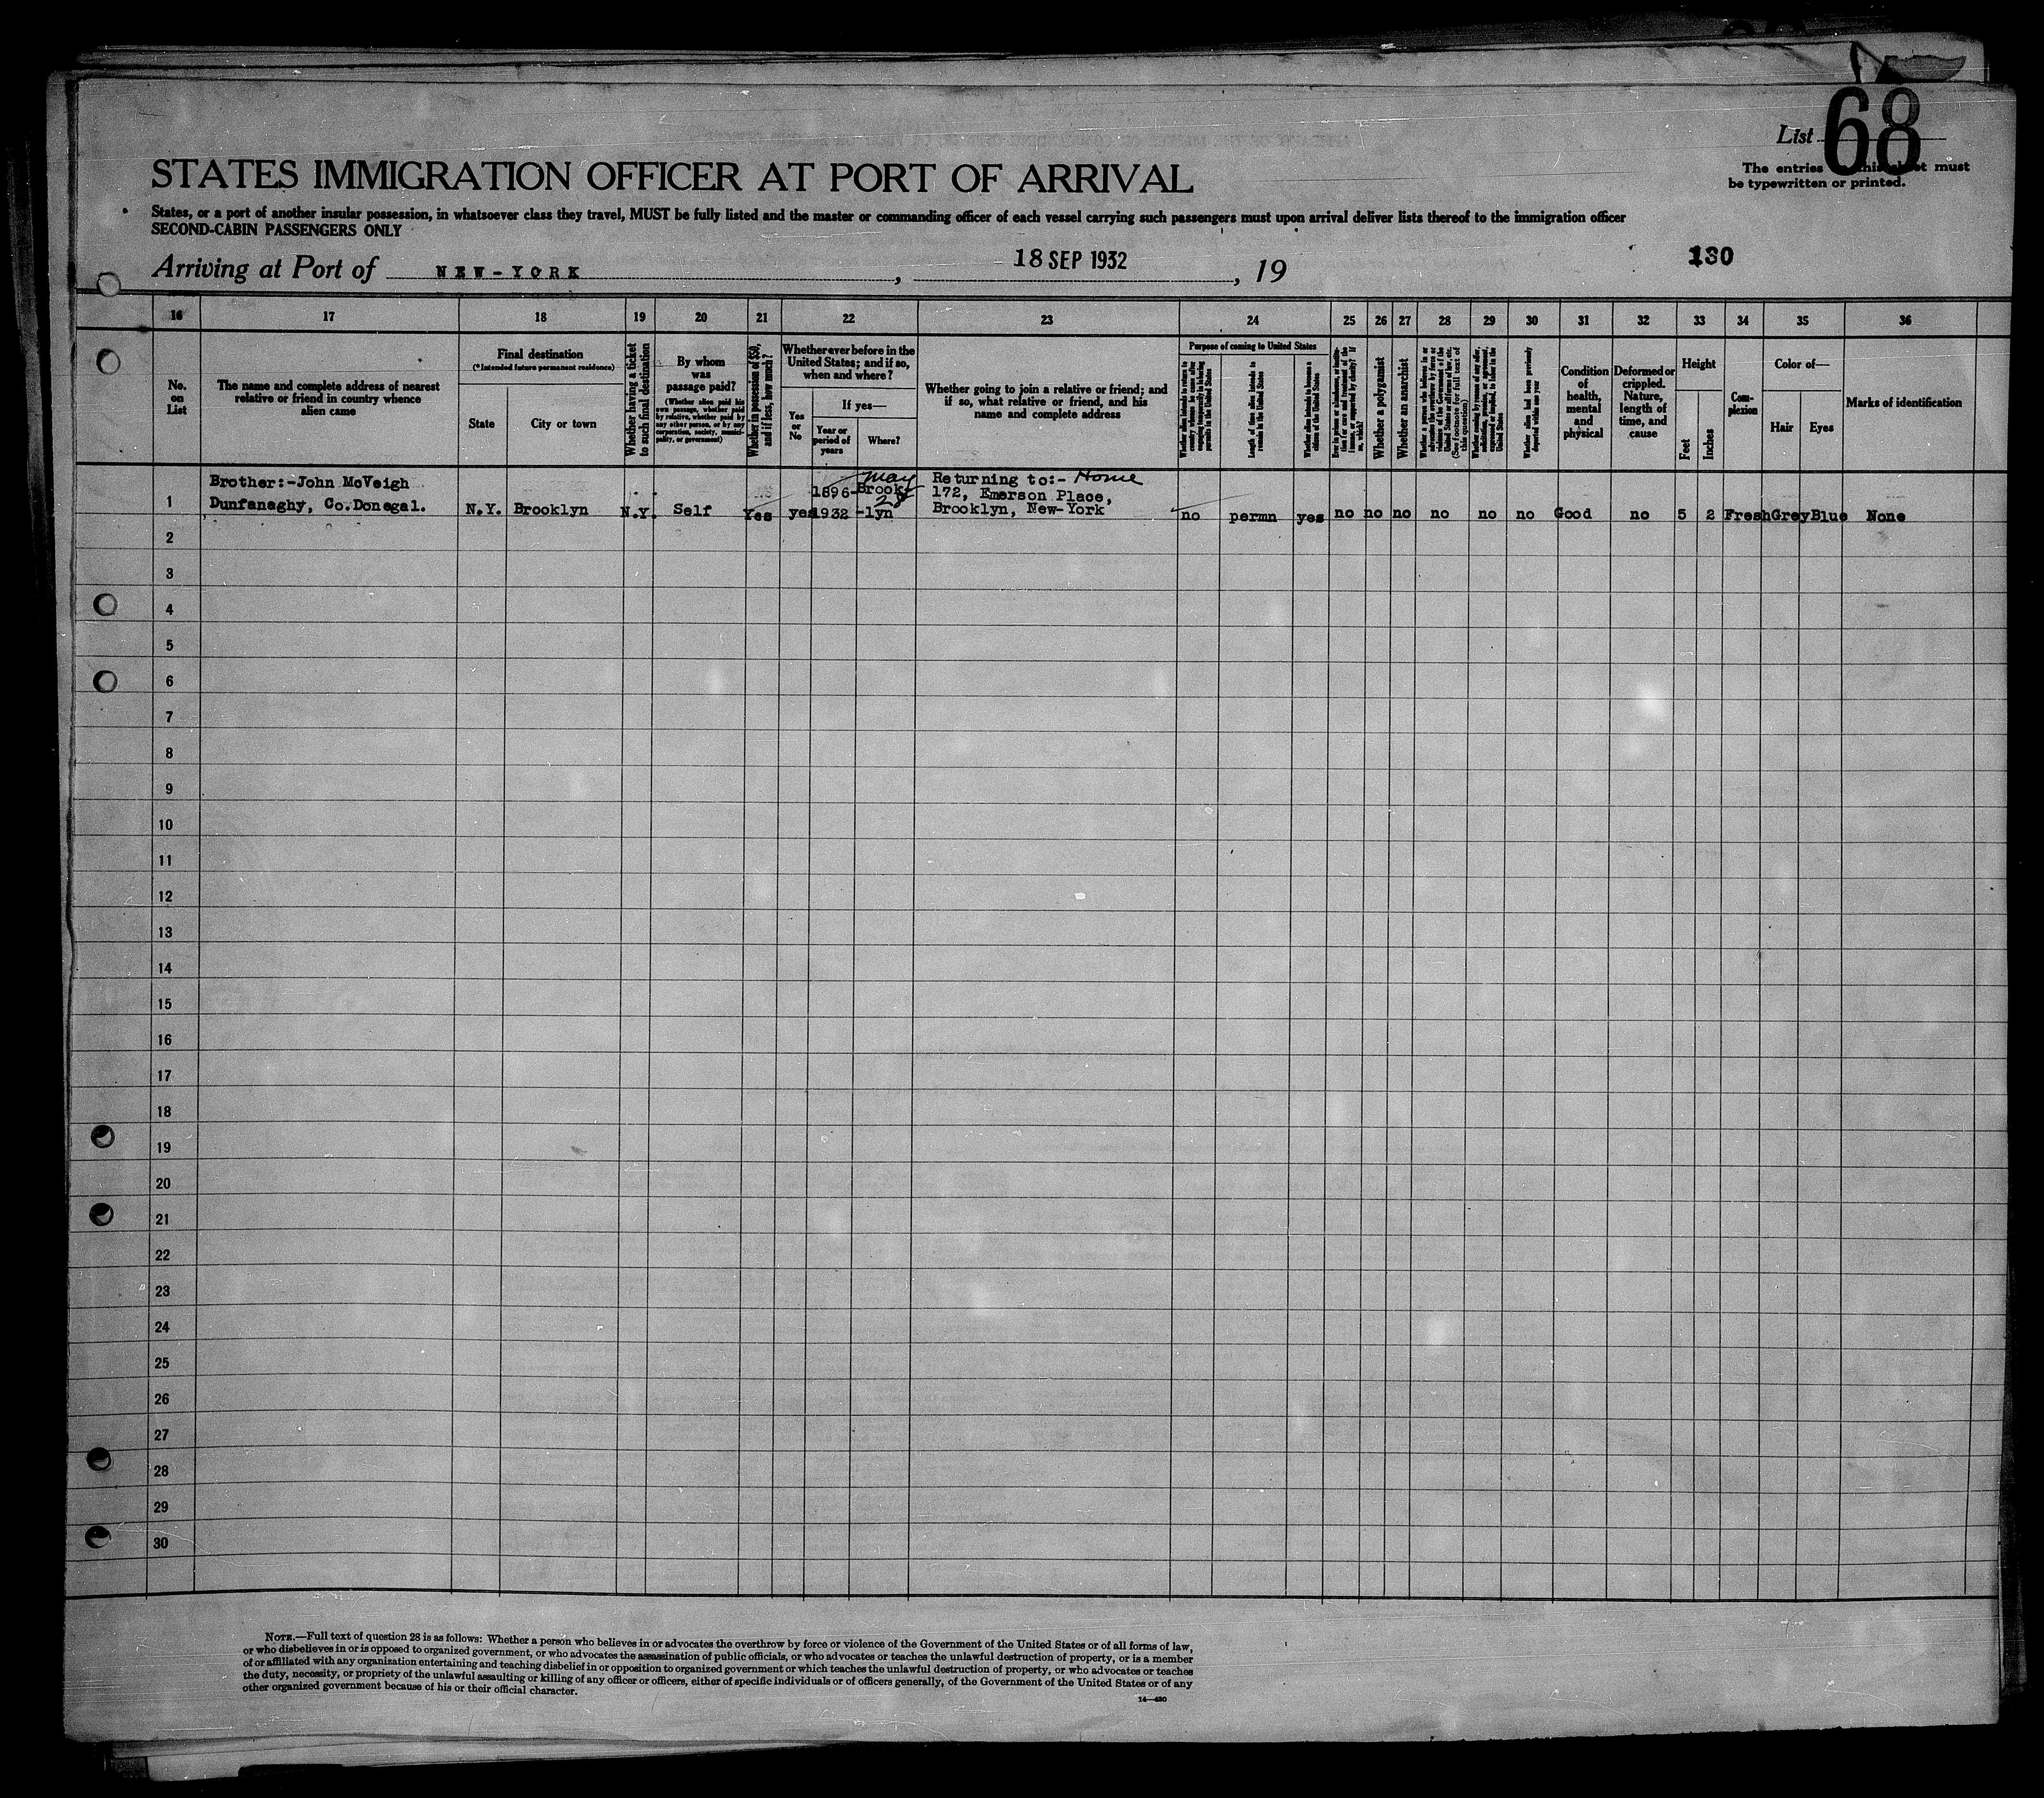 List 68
The entries must
be typewritten or printed.
STATES IMMIGRATION OFFICER AT PORT OF ARRIVAL
States, or a port of another insular possession, in whatsoever class they travel, MUST be fully listed and the master or commanding officer of each vessel carrying such passengers must upon arrival deliver lists thereof to the immigration officer
SECOND-CABIN PASSENGERS ONLY
Arriving at Port of NEW-YORK, 18 SEP 1932, 19
130
16 17 18 19 20 21 22 23 24 25 26 27 28 29 30 31 32 33 34 35 36
No. on List
The name and complete address of nearest
relative or friend in country whence
alien came
Final destination
(*Intended future permanent residence)
State
City or town
Whether having a ticket
to such final destination
By whom
was
passage paid?
(Whether alien paid his
own passage, whether paid
by relative, whether paid by
any other person, or by any
corporation, society, munici-
pality, or government)
Whether in possession of $50,
and if less, how much?
Whether ever before in the
United States; and if so,
when and where?
Yes
or
No
If yes—
Year or
period of
years
Where?
Whether going to join a relative or friend; and
if so, what relative or friend, and his
name and complete address
Purpose of coming to United States
Length of time alien intends to
remain in the United States
Whether alien intends to become a
citizen of the United States
Whether a polygamist
Whether an anarchist
(See footnote for full text of
this question)
Whether alien had been previously
deported within one year
Condition
of
health,
mental
and
physical
Deformed or
crippled.
Nature,
length of
time, and
cause
Height
Feet
Inches
Com-
plexion
Color of—
Hair
Eyes
Marks of identification
Brother:-John McVeigh
Dunfanaghy, Co.Donegal.
N.Y. Brooklyn N.Y. Self Yes yes
1896-
1932
May
28
Brook-
-lyn
Returning to:- Home
172, Emerson Place,
Brooklyn, New-York
no permn yes no no no no no no Good no 5 2 Fresh Grey Blue None
1
2
3
4
5
6
7
8
9
10
11
12
13
14
15
16
17
18
19
20
21
22
23
24
25
26
27
28
29
30
NOTE.—Full text of question 28 is as follows: Whether a person who believes in or advocates the overthrow by force or violence of the Government of the United States or of all forms of law,
or who disbelieves in or is opposed to organized government, or who advocates the assassination of public officials, or who advocates or teaches the unlawful destruction of property, or is a member
of or affiliated with any organization entertaining and teaching disbelief in or opposition to organized government or which teaches the unlawful destruction of property, or who advocates or teaches
the duty, necessity, or propriety of the unlawful assaulting or killing of any officer or officers, either of specific individuals or of officers generally, of the Government of the United States or of any
other organized government because of his or their official character.
14—430